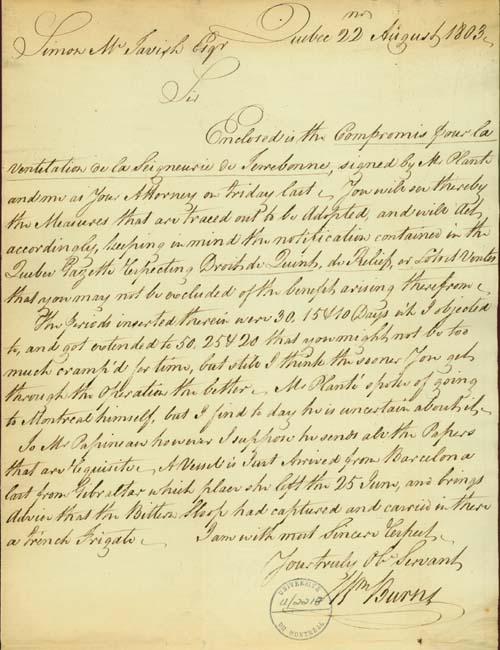 Simon Mc Tavish Esqr Quebec 22nd August 1803
Sir
Enclosed is the Compromis pour la
Ventilation de la Seigneurie de Terrebonne, signed by Mr Planté
and me as Your Attorney on Friday last. You will see thereby
the Measures that are traced out to be Adopted, and will Act
accordingly, keeping in mind the notification contained in the
Quebec Gazette respecting Droit de Quint, de Relief, or Lods et Ventes
that you may not be excluded of the benefit arising therefrom.
The Periods inserted therein were 30, 15 & 10 Days wh I objected
to, and got extended to 50, 25 & 20 that you might not be too
much cramp'd for time, but still I think the sooner You get
through the Operation the better. Mr Planté spoke of going
to Montreal himself, but I find to day he is uncertain about it.
To Mr Papineau however I suppose he sends all the Papers
that are requisite. A Vessel is Just Arrived from Barcelona
last from Gibraltar which place she left the 25 June, and brings
Advice that the Bittern Sloop had captured and carried in there
a french Frigate. I am with most Sincere respect
Your truly Obt Servant
Wm Burns
UNIVERSITÉ
U/2218
DE MONTREAL